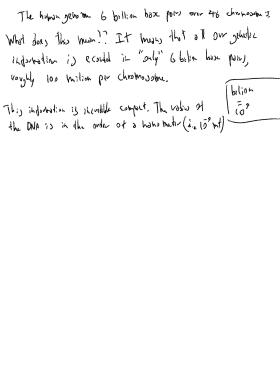 The human genome 6 billion base pairs over 46 chromosomes
What does this mean?? It means that all our genetic
information is encoded in "only" 6 billion base pairs,
roughly 100 million per chromosome.
This information is incredible compact. The radius of
the DNA is in the order of a nanometer (i.e. 10^-9 mt)
billion
=
10^9